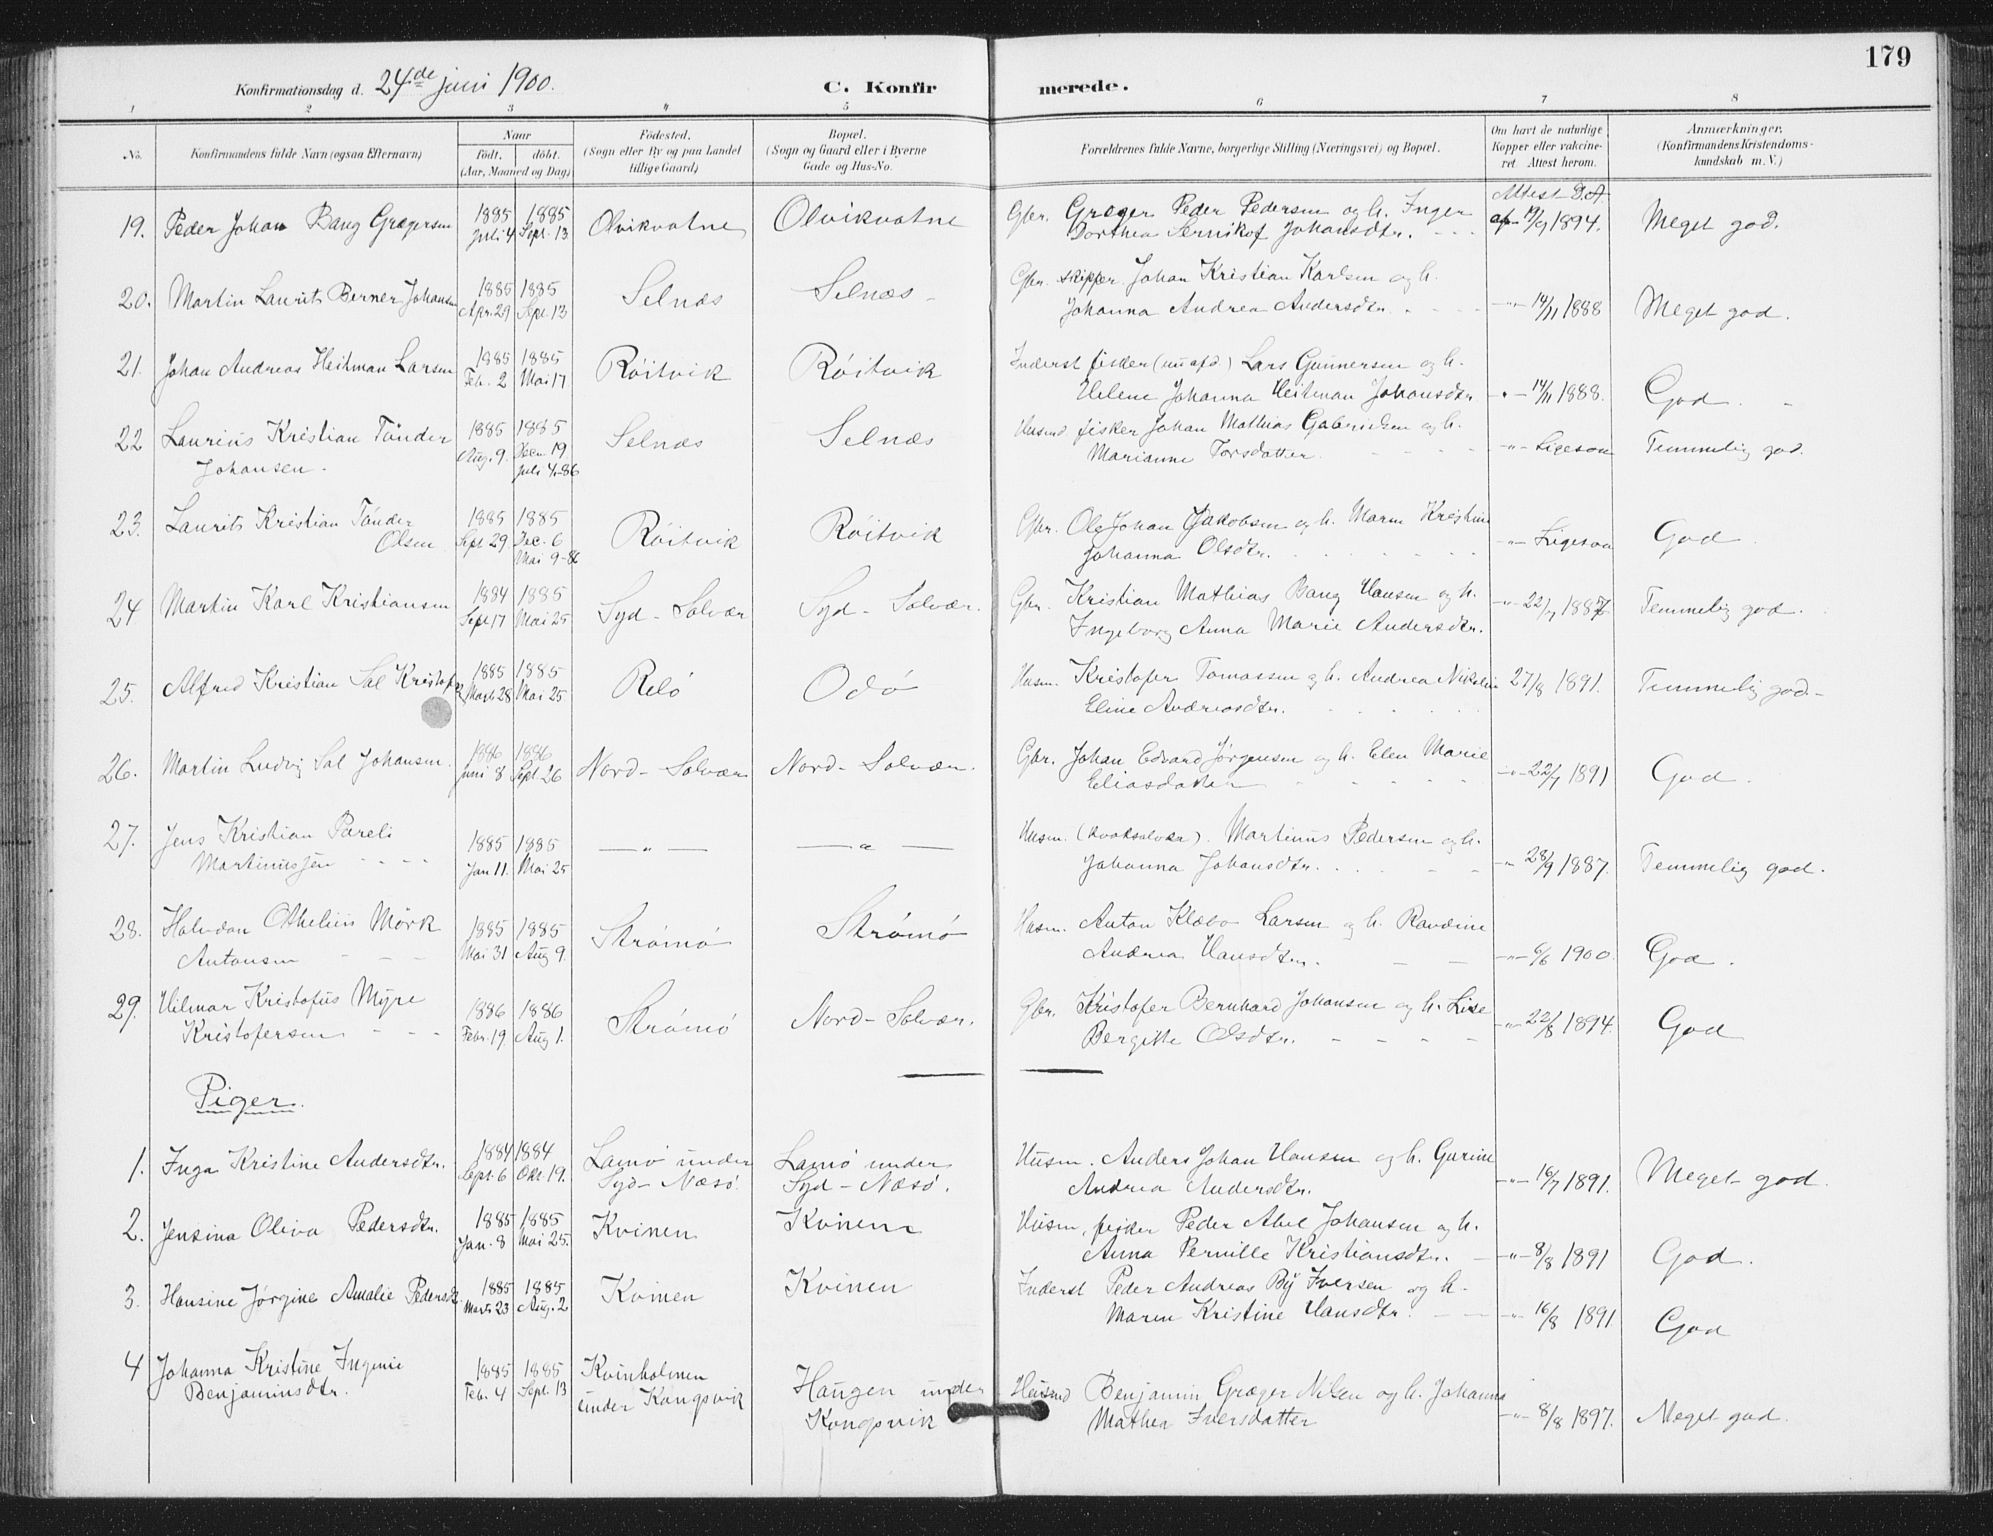 179
Konfirmationsdag d. 24de juni 1900.
C. Konfirmerede.
1 2 3 4 5 6 7 8
No.
Konfirmandens fulde Navn (ogsaa Efternavn)
Naar
födt. döbt.
(Aar, Maaned og Dag)
Födested.
(Sogn eller By og paa Landet
tillige Gaard)
Bopæl.
(Sogn og Gaard eller i Byerne
Gade og Hus-No.
Forældrenes fulde Navne, borgerlige Stilling (Næringsvei) og Bopæl.
Om havt de naturlige
Kopper eller vakcine-
ret. Attest herom.
Anmærkninger.
(Konfirmandens Kristendoms-
kundskab m. V.)
19. Peder Johan Bang Grægersen 1885 Juli 4 1885 Sept. 13 Olvikvatne Olvikvatne Gbr. Græger Peder Pedersen og h. Inger
Dorthea Johansdtr. Attest D.A. af 19/9 1894. Meget god.
20. Martin Laurits Berner Johansen 1885 Apr. 29 1885 Sept. 13 Selnæs Selnæs Gbr. skipper Johan Kristian Karlsen og h.
Johanna Andrea Andersdtr. -"- 14/11 1888 Meget god.
21. Johan Andreas Heitman Larsen 1885 Feb. 2 1885 Mai 17 Röitvik Röitvik Inderst fisker (nu afd.) Lars Gunnersen og h.
Helene Johanna Heitman Johansdtr. -"- 14/11 1888. God.
22 Laurius Kristian Tönder
Johansen. 1885 Aug. 9. 1885 Decn 19 Juli 4-86 Selnæs Selnæs Husmd fisker Johan Mathias Gabrielsen og h.
Marianne Torsdatter -"- Ligesom Temmelig god.
23. Laurits Kristian Tönder
Olsen 1885 Sept 29 1885 Dec. 6 Mai 9-86 Röitvik Röitvik Gbr. Ole Johan Jakobsen og h. Maren Kristine
Johanna Olsdtr. -"- Ligesom God
24 Martin Karl Kristiansen 1884 Sept 17 1885 Mai 25 Syd-Solvær Syd-Solvær. Gbr. Kristian Mathias Bang Hansen og h.
Ingeborg Anna Marie Andersdtr. -"- 22/7 1887 Temmelig god.
25. Alfred Kristian Sal Kristofers 1885 Marts 28 1885 Mai 25 Relö Odö Husm. Kristofer Tomassen og h. Andrea Nikoline
Eline Andreasdtr. 27/8 1891. Temmelig god.
26. Martin Ludvig Sal Johansen. 1886 Juni 8 1886 Sept. 26 Nord-Solvær Nord-Solvær. Gbr. Johan Edvard Jørgensen og h. Elen Marie
Eliasdatter -"- 22/7 1891 God.
27. Jens Kristian Pareli
Martinussen 1885 Jan 11. 1885 Mai 25 -"- -"- Husm. (Kvaksalver). Martinus Pedersen og h.
Johanna Johansdtr. -"- 28/9 1887. Temmelig god.
28. Halvdan Othelius Mörk
Antonsen 1885 Mai 31 1885 Aug 9. Strömö Strömö Husm. Anton Klæbo Larsen og h. Ravdine
Andrea Hansdtr. -"- 6/6 1900. God.
29. Hilmar Kristofus Myre
Kristofersen 1886 Febr. 19 1886 Aug 1. Strömö Nord-Solvær. Gbr. Kristofer Bernhard Johansen og h. Lise
Bergitte Olsdtr. -"- 22/8 1894. God
Piger.
1. Inga Kristine Andersdtr. 1884 Sept. 6 1884 Okt. 19. Lamö under
Syd-Næsö. Lamö under
Syd-Næsö. Husm. Anders Johan Hansen og h. Gurine
Andrea Andersdtr. -"- 16/7 1891. Meget god.
2. Jensina Oliva Pedersdtr. 1885 Jan. 8 1885 Mai 25. Kvinen Kvinen Husm. fisker Peder Abel Johansen og h.
Anna Pernille Kristiansdtr. -"- 8/8 1891 God.
3. Hansine Jörgine Amalie Pedersdtr 1885 Marts 23 1885 Aug. 2 Kvinen Kvinen Inderst Peder Andreas By Iversen og h.
Maren Kristine Hansdtr. -"- 16/8 1891. God
4 Johanna Kristine Ingenie
Benjaminsdtr. 1885 Feb. 4 1885 Sept. 13 Kvinholmen
under Kongsvik Haugen under
Kongsvik Husmd Benjamin Græger Nilsen og h. Johanna
Mathea Iversdatter -"- 8/8 1897. Meget god.